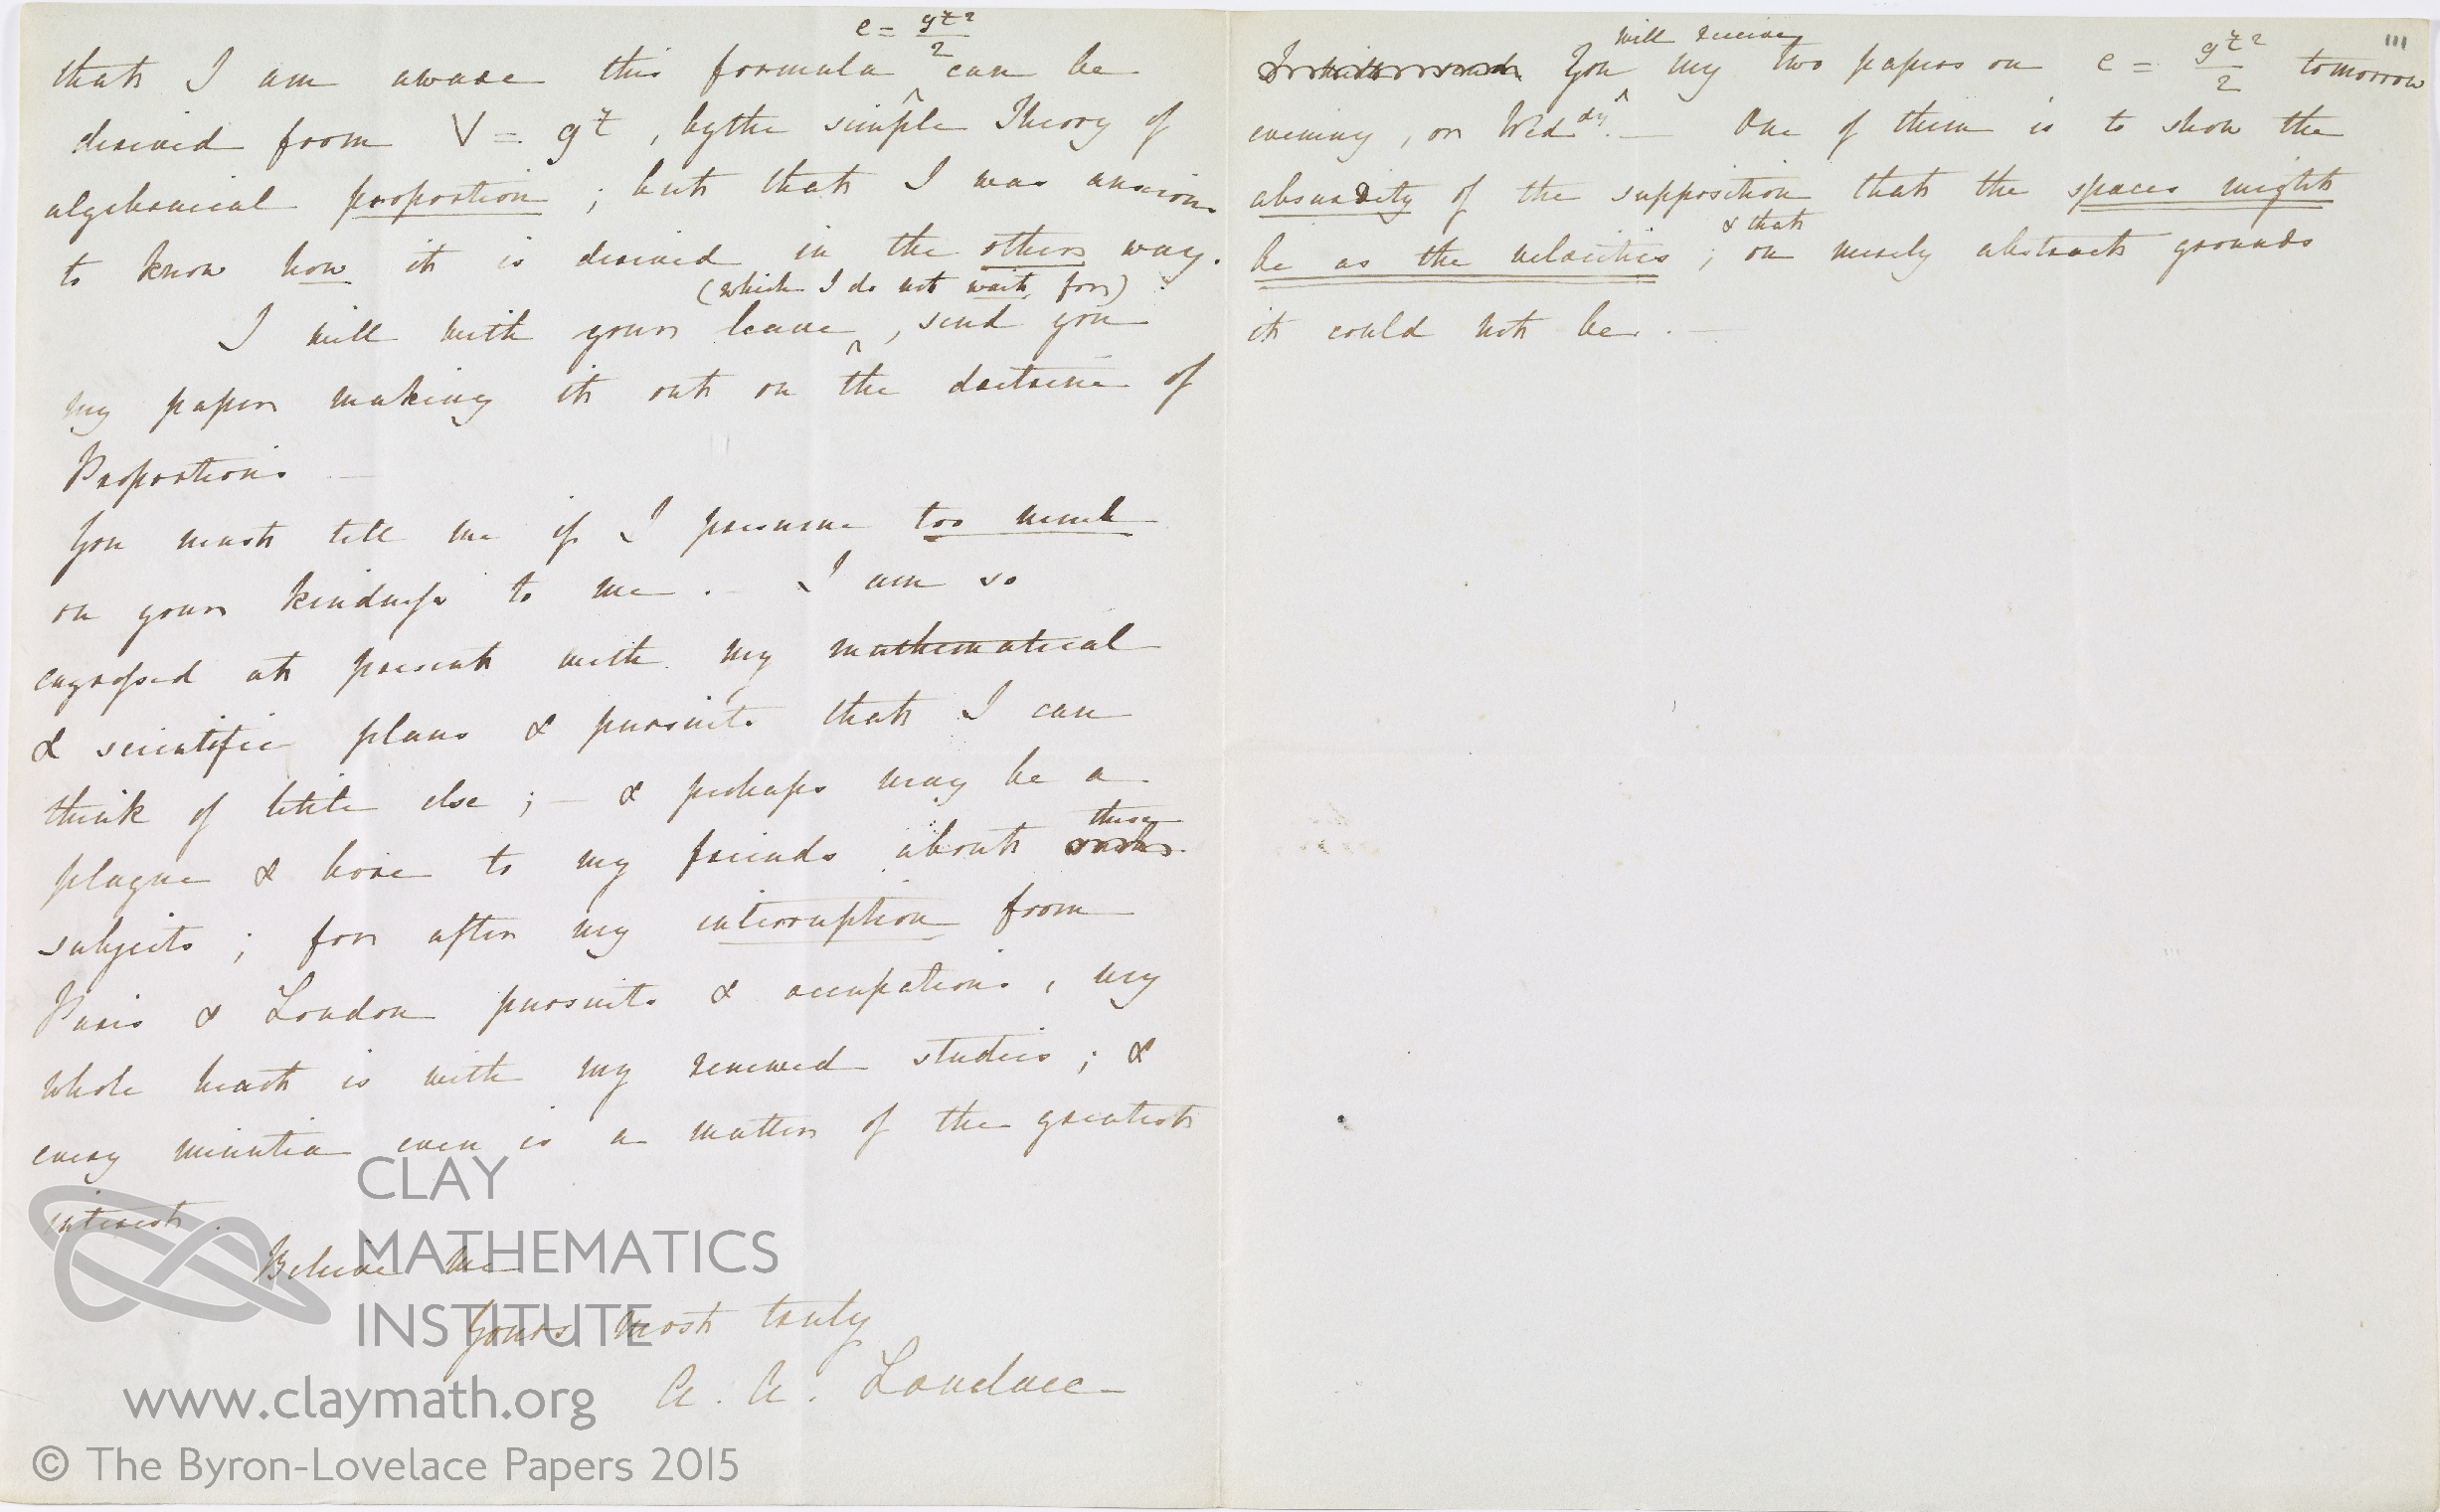 e = gt²/2
that I am aware this formula can be
derived from V = gt, by the simple Theory of
algebraical proportion; but that I was anxious
to know how it is derived in the other way.
(which I do not wait for)
I will with your leave, send you
my paper making it out on the doctrine of
Proportions —
You must tell me if I presume too much
on your kindness to me. — I am so
engrossed at present with my mathematical
& scientific plans & pursuits that I can
think of little else; — & perhaps may be a
plague & bore to my friends about these
subjects; for after my interruption from
Paris & London pursuits & occupations, my
whole heart is with my renewed studies; &
every minutia even is a matter of the greatest
interest.
Believe me
Yours most truly
A. A. Lovelace
111
will receive
You my two papers on e = gt²/2 tomorrow
evening, or Wed^dy. — One of them is to show the
absurdity of the supposition that the spaces might
& that
be as the velocities; on merely abstract grounds
it could not be. —
CLAY
MATHEMATICS
INSTITUTE
www.claymath.org
© The Byron-Lovelace Papers 2015